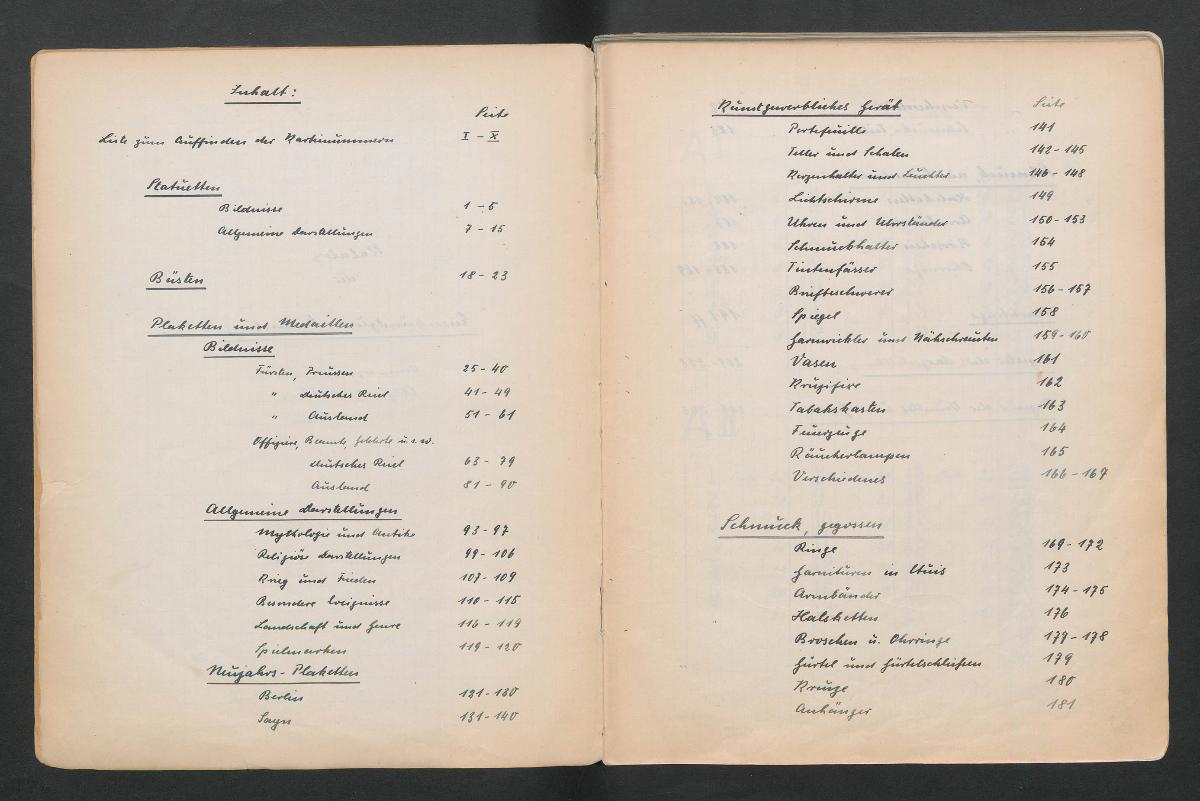 Inhalt:
Seite
Liste zum Auffinden der Kartennummern I - X
Statuetten
Bildnisse 1 - 5
Allgemeine Darstellungen 7 - 15
Büsten 18 - 23
Plaketten und Medaillen
Bildnisse
Fürsten, Preussen 25 - 40
" deutsches Reich 41 - 49
" Ausland 51 - 61
Offiziere, Beamte, Gelehrte u.s.w.
deutsches Reich 63 - 79
Ausland 81 - 90
Allgemeine Darstellungen
Mythologie und Antike 93 - 97
Religiöse Darstellungen 99 - 106
Krieg und Frieden 107 - 109
Besondere Ereignisse 110 - 115
Landschaft und Genre 116 - 119
Spielmarken 119 - 120
Neujahrs-Plaketten
Berlin 121 - 130
Sayn 131 - 140
Kunstgewerbliches Gerät Seite
Portefeuille 141
Teller und Schalen 142 - 145
Kerzenhalter und Leuchter 146 - 148
Lichtschirme 149
Uhren und Uhrständer 150 - 153
Schmuckhalter 154
Tintenfässer 155
Briefbeschwerer 156 - 157
Spiegel 158
Garnwickler und Nähschrauben 159 - 160
Vasen 161
Kruzifixe 162
Tabakskasten 163
Feuerzeuge 164
Räucherlampen 165
Verschiedenes 166 - 167
Schmuck, gegossen
Ringe 169 - 172
Garnituren in Etuis 173
Armbänder 174 - 175
Halsketten 176
Broschen u. Ohrringe 177 - 178
Gürtel und Gürtelschleifen 179
Kreuze 180
Anhänger 181